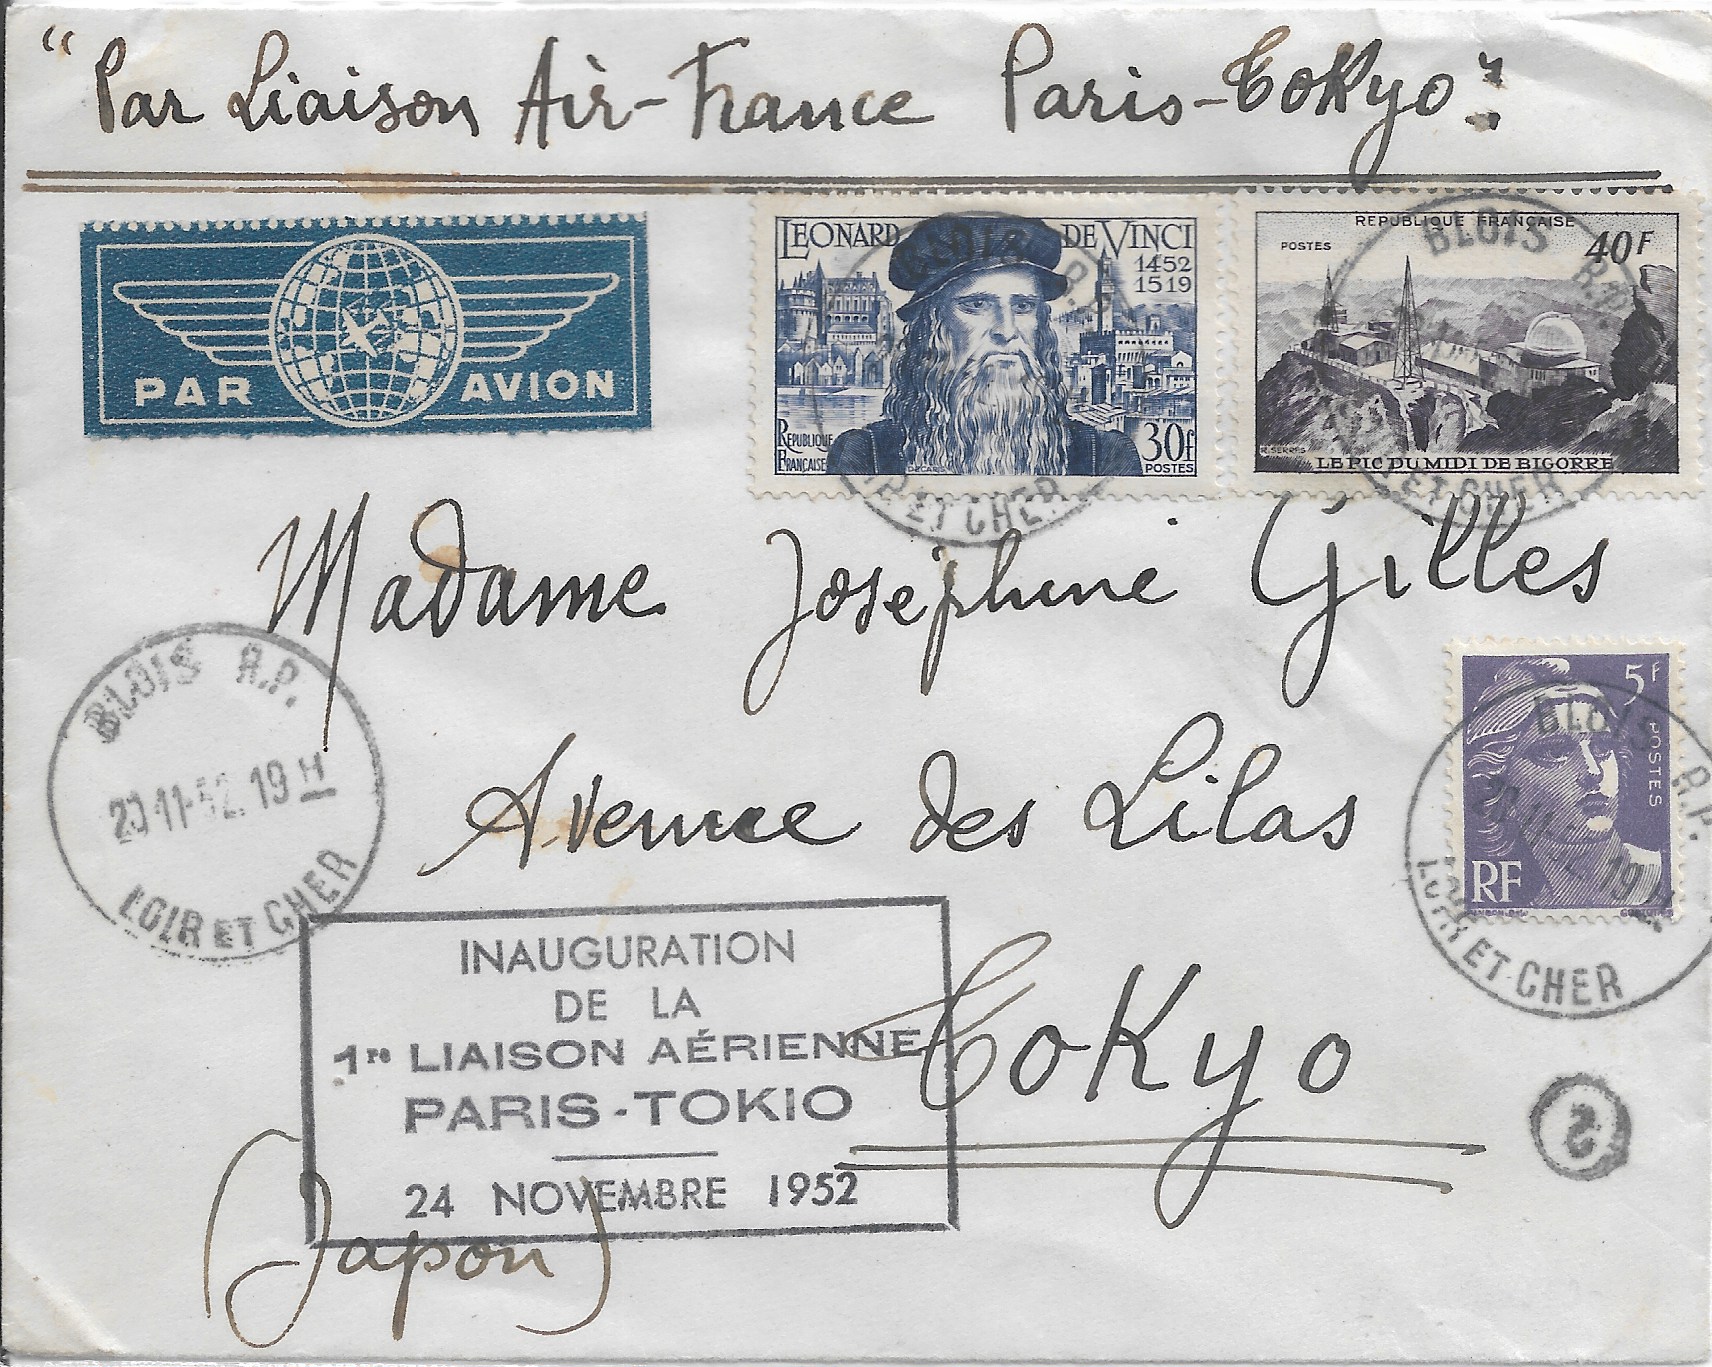 "Par Liaison Air-France Paris-Tokyo":
PAR AVION
LEONARD DE VINCI
1452
1519
REPUBLIQUE
FRANÇAISE
30f
POSTES
DECARIS
BLOIS R.P.
LOIR ET CHER
REPUBLIQUE FRANÇAISE
POSTES
40F
R. SERRES
LE PIC DU MIDI DE BIGORRE
BLOIS R.P.
ET CHER
Madame Joséphine Gilles
Avenue des Lilas
Tokyo
(Japon)
5f
POSTES
RF
BLOIS R.P.
19 H
LOIR ET CHER
BLOIS R.P.
20-11-52. 19 H
LOIR ET CHER
INAUGURATION
DE LA
1re LIAISON AÉRIENNE
PARIS-TOKIO
24 NOVEMBRE 1952
2